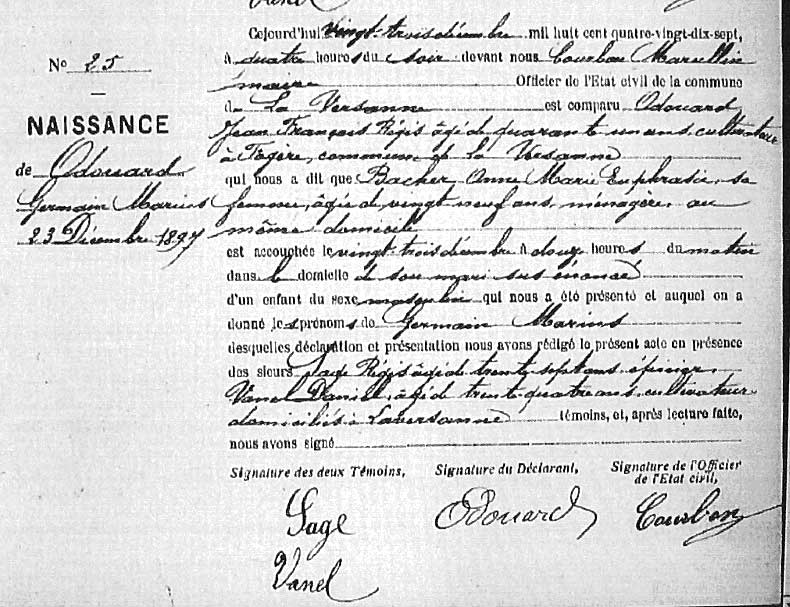 Vanel
Cejourd'hui vingt trois décembre mil huit cent quatre-vingt-dix-sept,
à quatre heures du soir devant nous Courbon Marcellin
maire Officier de l'Etat civil de la commune
de La Versanne est comparu Odouard
Jean François Régis âgé de quarante un ans, cultivateur
à Fogère, commune de La Versanne
qui nous a dit que Bacher Anne Marie Euphrasie, sa
femme, âgée de vingt neuf ans, ménagère, au
même domicile
est accouchée le vingt trois décembre à douze heures du matin
dans le domicile de son mari sus énoncé
d'un enfant du sexe masculin qui nous a été présenté et auquel on a
donné les prénoms de Germain Marius
desquelles déclaration et présentation nous avons rédigé le présent acte en présence
des sieurs Sage Régis âgé de trente sept ans, épicier,
Vanel Daniel, âgé de trente quatre ans, cultivateur
domiciliés à Laversanne témoins, et, après lecture faite,
nous avons signé
No 25
NAISSANCE
de Odouard
Germain Marius
23 Décembre 1897
Signature des deux Témoins,
Sage
Vanel
Signature du Déclarant,
Odouard
Signature de l'Officier
de l'Etat civil,
Courbon